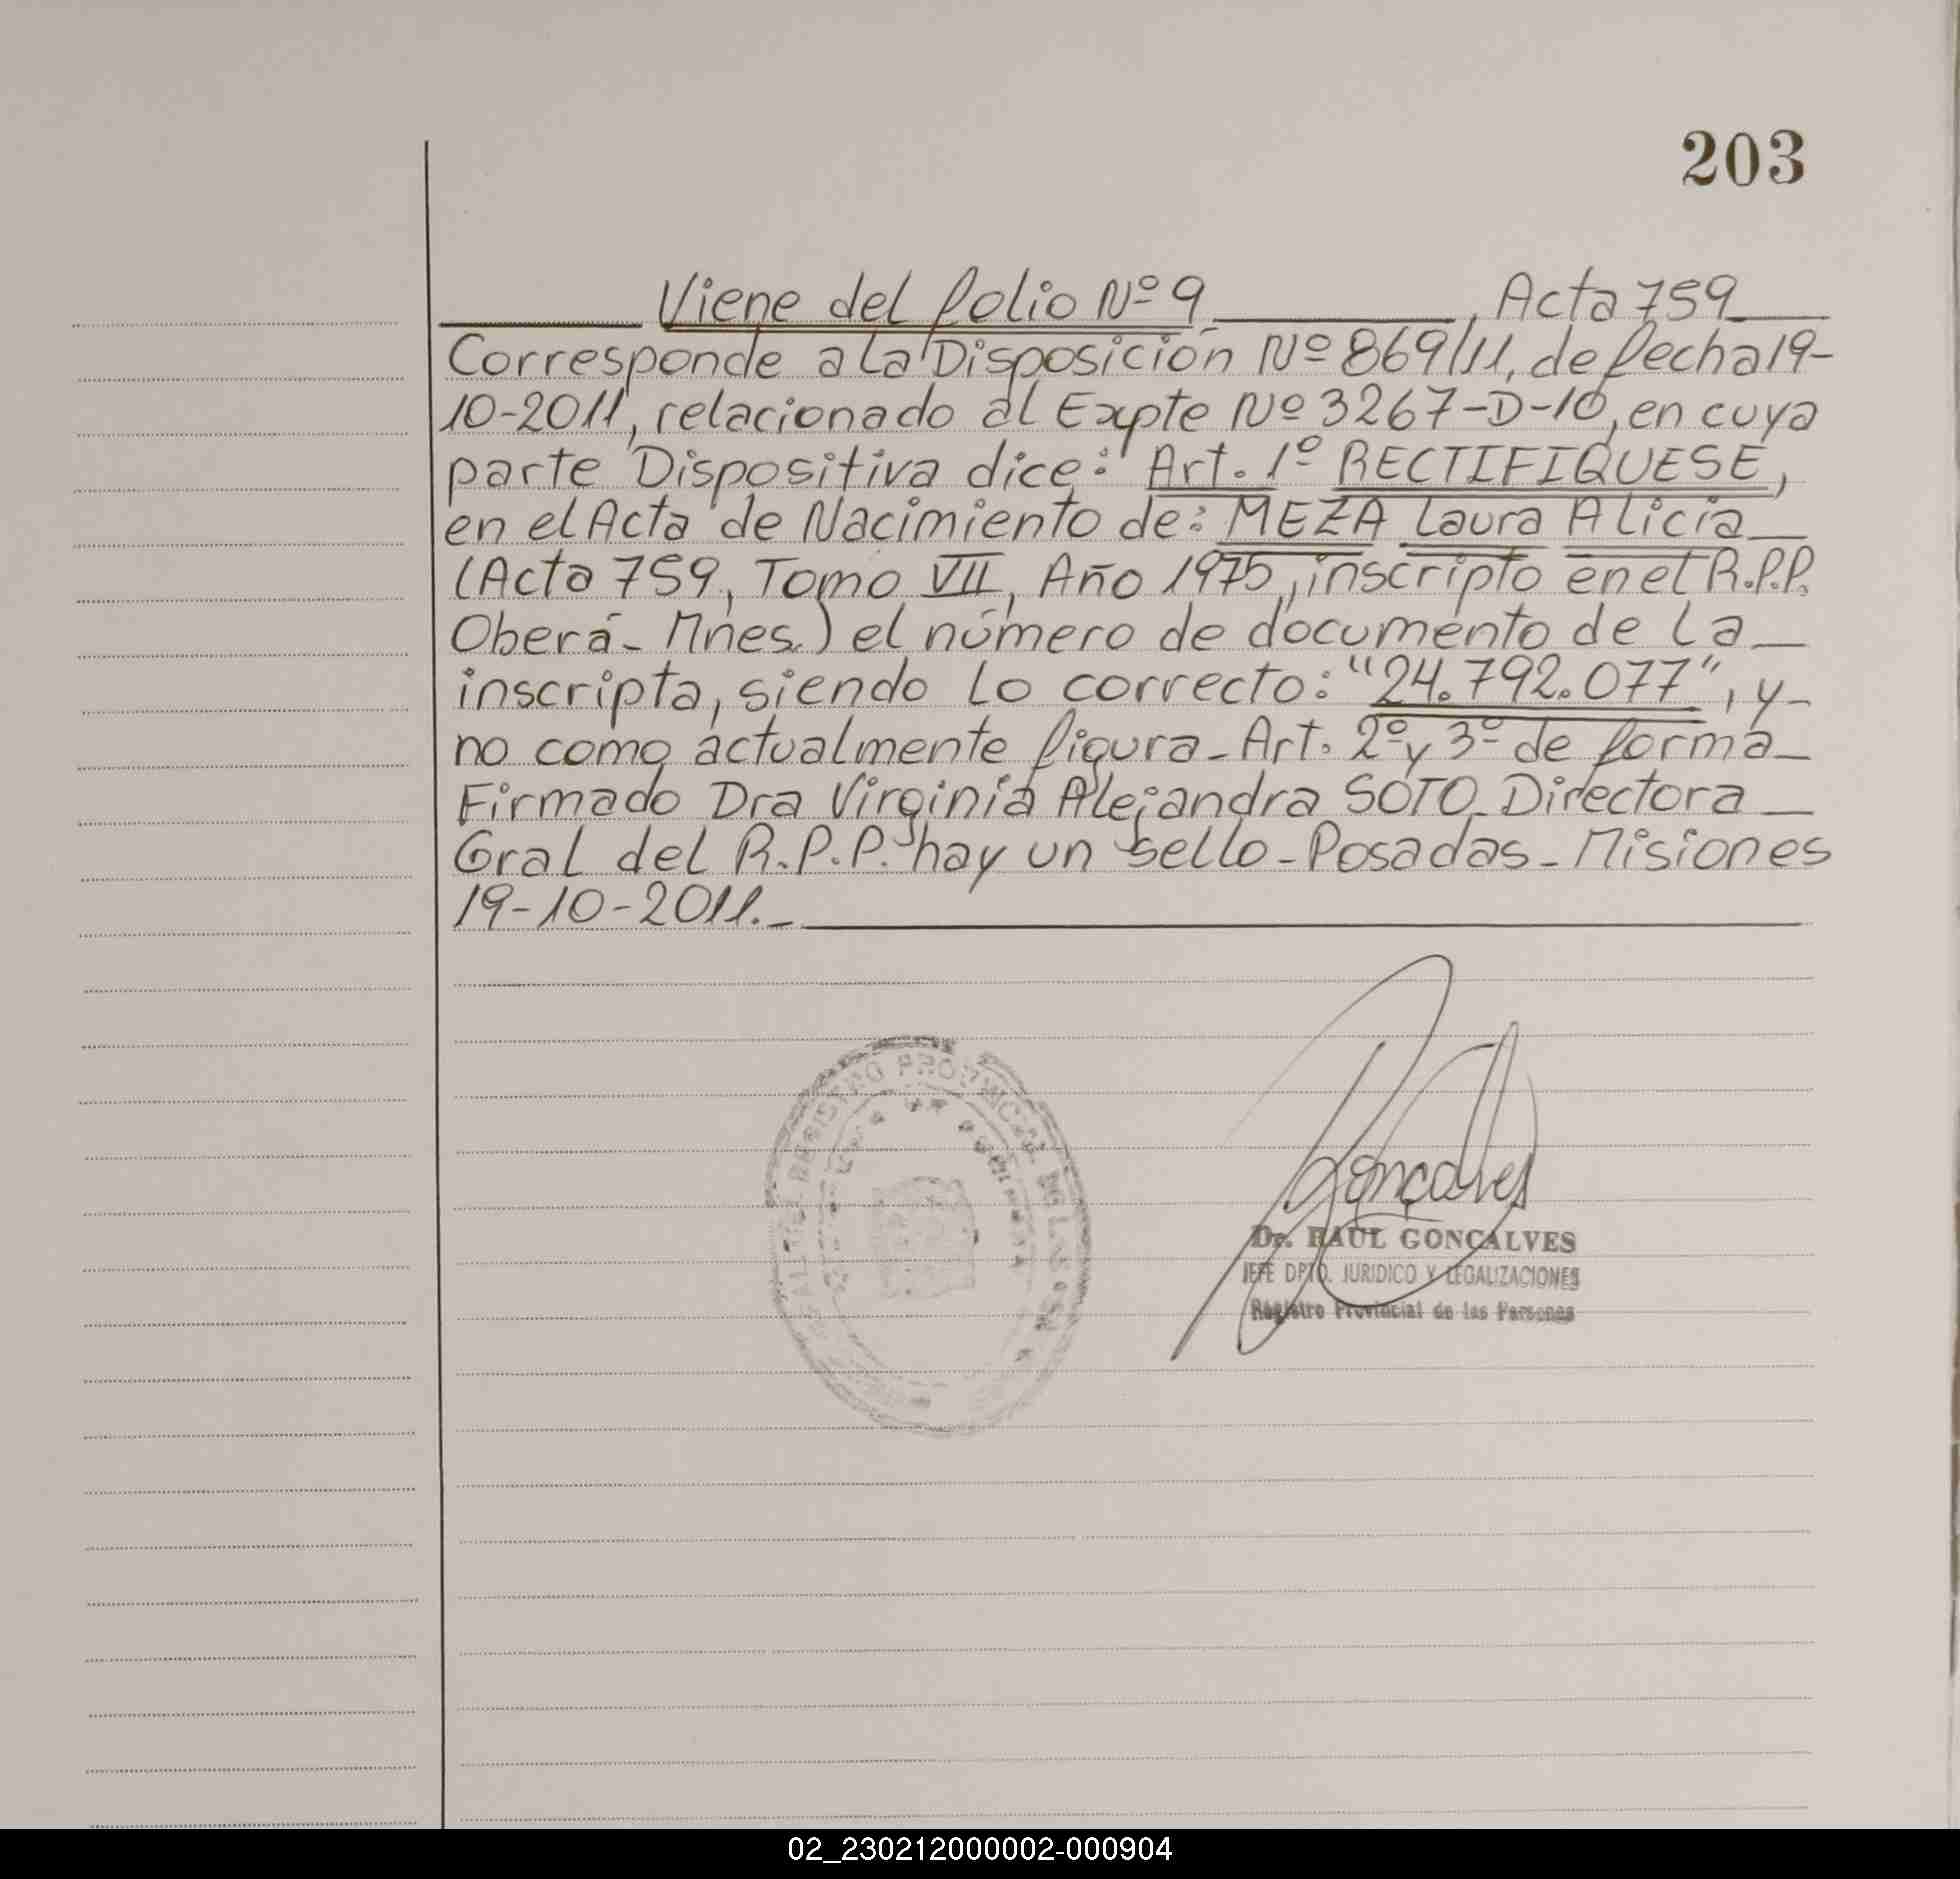 203
Viene del folio Nº 9 , Acta 759
Corresponde a la Disposición Nº 869/11, de fecha 19-
10-2011, relacionado al Expte Nº 3267-D-10, en cuya
parte Dispositiva dice: Art. 1º RECTIFIQUESE,
en el Acta de Nacimiento de: MEZA Laura Alicia
(Acta 759, Tomo VII, Año 1975, inscripto en el R.P.P.
Oberá - Mnes.) el número de documento de la
inscripta, siendo lo correcto: "24.792.077", y-
no como actualmente figura - Art. 2º y 3º de forma
Firmado Dra Virginia Alejandra SOTO - Directora
Gral del R.P.P. hay un sello - Posadas - Misiones
19-10-2011.
REGISTRO PROVINCIAL DE LAS
Gonçalves
Dr. RAUL GONCALVES
JEFE DPTO. JURIDICO Y LEGALIZACIONES
Registro Provincial de las Personas
02_230212000002-000904